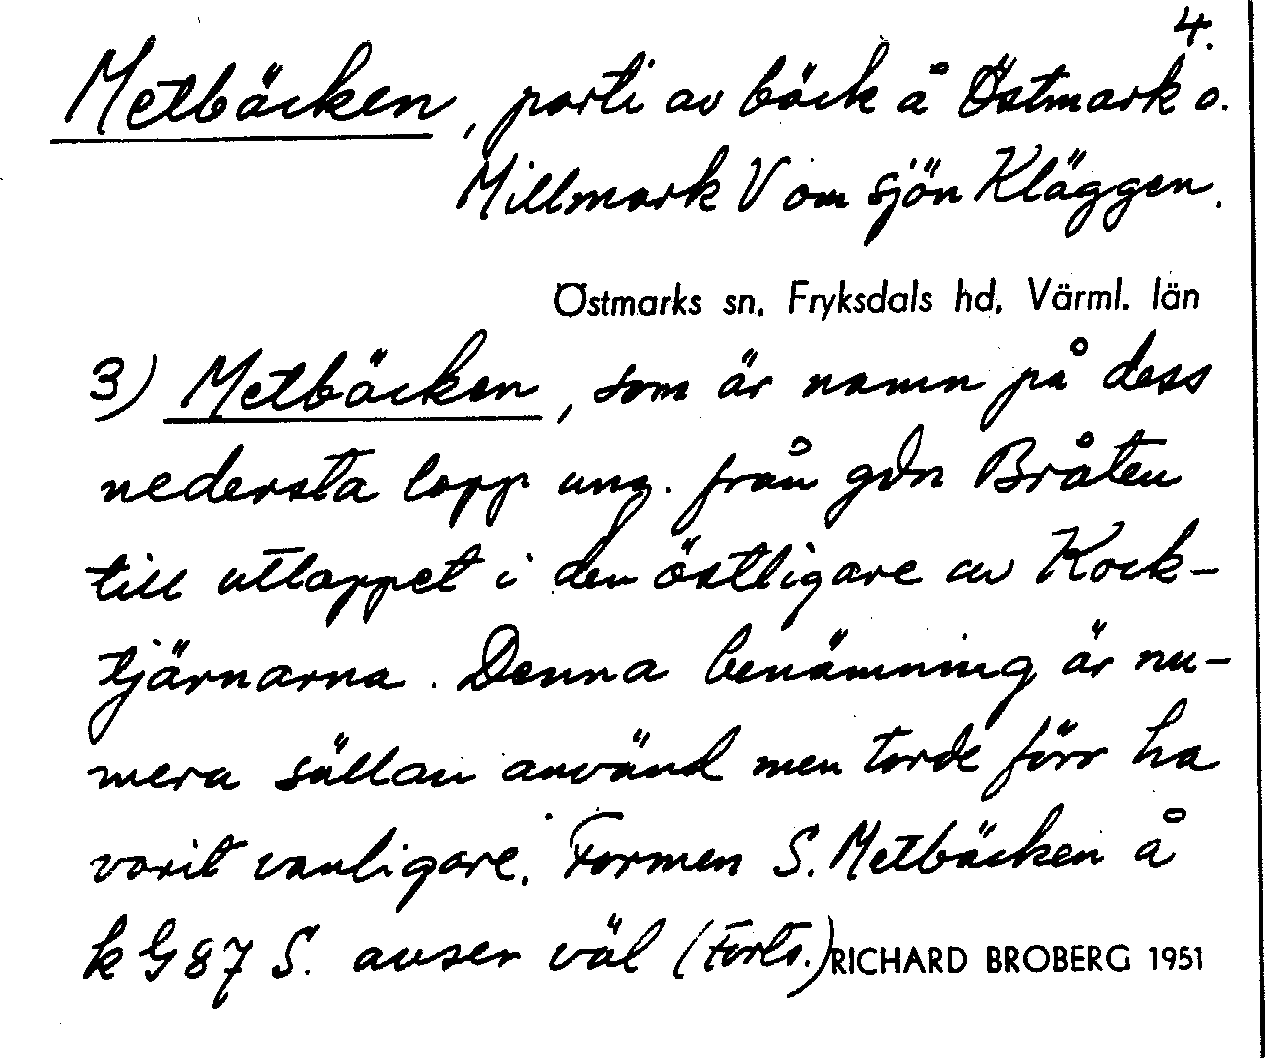 4.
Metbäcken, parti av bäck å Östmark o.
Millmark V om sjön Kläggen.
Östmarks sn, Fryksdals hd, Värml. län
3) Metbäcken, som är namn på dess
nedersta lopp ung. från gdn Bråten
till utloppet i den östligare av Kock-
tjärnarna. Denna benämning är nu-
mera sällan använd men torde förr ha
varit vanligare. Formen S. Metbäcken å
k G 87 S. avser väl (Forts.) RICHARD BROBERG 1951